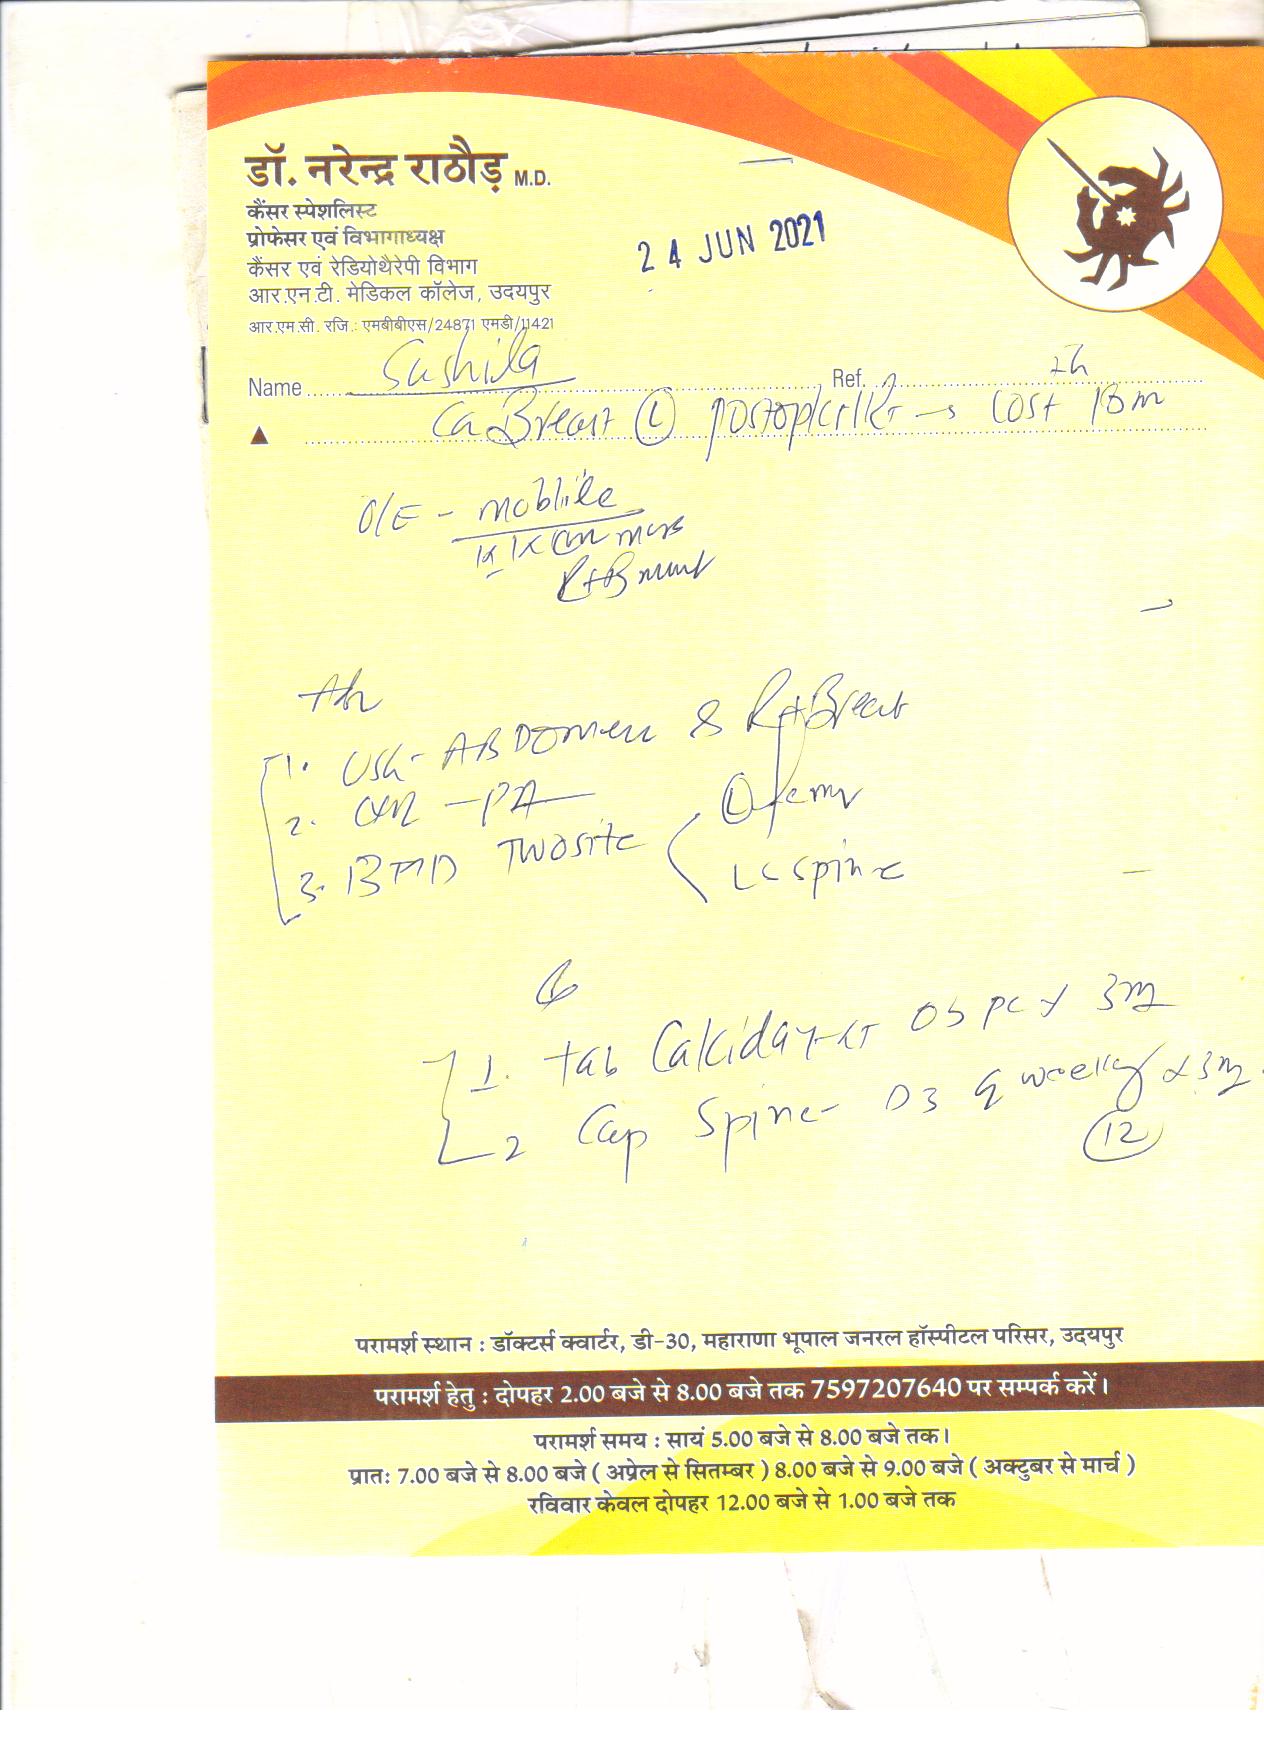 डॉ. नरेन्द्र राठौड़ M.D.
कैंसर स्पेशलिस्ट
प्रोफेसर एवं विभागाध्यक्ष
कैंसर एवं रेडियोथैरेपी विभाग
आर.एन.टी. मेडिकल कॉलेज, उदयपुर
आर.एम.सी. रजि.: एमबीबीएस/24871 एमडी/11421
24 JUN 2021
Name Sushila Ref.
Ca Breast (L) postop/CT/RT → Lost
O/E - mobile
1x1x cm mass
Rt B
Adv
1. USG - ABDOMEN & Rt Breast
2. CXR - PA
3. BMD TWO site (L) femur
LS spine
1. tab Calciday OD pc x 3m
2 Cap Spine- D3 q weekly x 3m
(12)
परामर्श स्थान : डॉक्टर्स क्वार्टर, डी-30, महाराणा भूपाल जनरल हॉस्पीटल परिसर, उदयपुर
परामर्श हेतु : दोपहर 2.00 बजे से 8.00 बजे तक 7597207640 पर सम्पर्क करें।
परामर्श समय : सायं 5.00 बजे से 8.00 बजे तक।
प्रातः 7.00 बजे से 8.00 बजे ( अप्रेल से सितम्बर ) 8.00 बजे से 9.00 बजे ( अक्टुबर से मार्च )
रविवार केवल दोपहर 12.00 बजे से 1.00 बजे तक